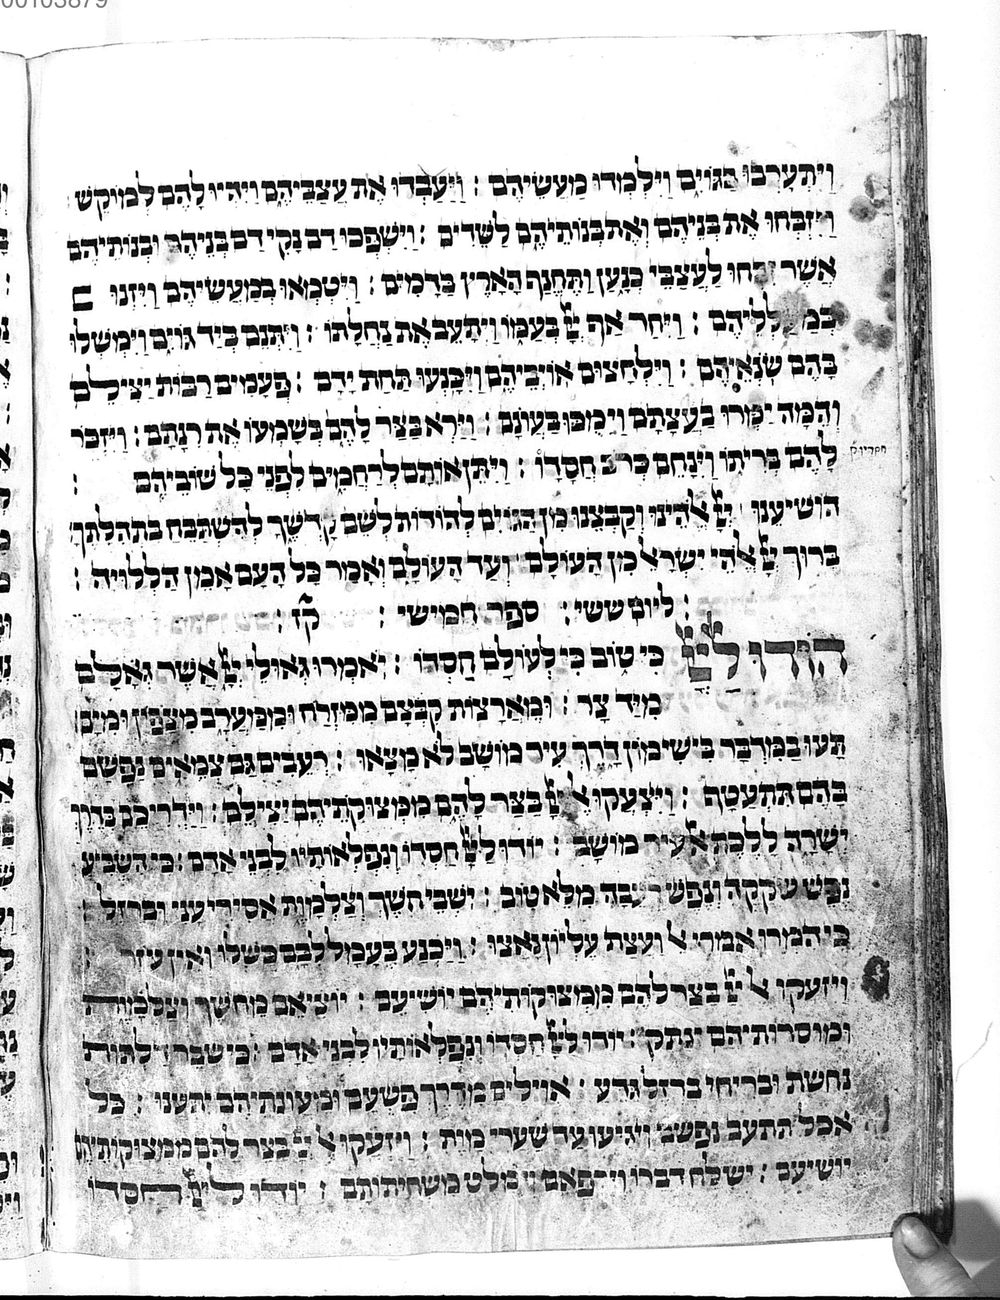 00103879
וַיִּתְעָרְבוּ בַגּוֹיִם וַיִּלְמְדוּ מַעֲשֵׂיהֶם : וַיַּעַבְדוּ אֶת עֲצַבֵּיהֶם וַיִּהְיוּ לָהֶם לְמוֹקֵשׁ
וַיִּזְבְּחוּ אֶת בְּנֵיהֶם וְאֶת בְּנוֹתֵיהֶם לַשֵּׁדִים : וַיִּשְׁפְּכוּ דָם נָקִי דַם בְּנֵיהֶם וּבְנוֹתֵיהֶם
אֲשֶׁר זִבְּחוּ לַעֲצַבֵּי כְנָעַן וַתֶּחֱנַף הָאָרֶץ בַּדָּמִים : וַיִּטְמְאוּ בְמַעֲשֵׂיהֶם וַיִּזְנוּ
בְּמַעַלְלֵיהֶם : וַיִּחַר אַף יְיָ בְּעַמּוֹ וַיְתָעֵב אֶת נַחֲלָתוֹ : וַיִּתְּנֵם בְּיַד גּוֹיִם וַיִּמְשְׁלוּ
בָהֶם שֹׂנְאֵיהֶם : וַיִּלְחָצוּם אוֹיְבֵיהֶם וַיִּכָּנְעוּ תַּחַת יָדָם : פְּעָמִים רַבּוֹת יַצִּילֵם
וְהֵמָּה יַמְרוּ בַעֲצָתָם וַיָּמֹכּוּ בַּעֲוֹנָם : וַיַּרְא בַּצַּר לָהֶם בְּשָׁמְעוֹ אֶת רִנָּתָם : וַיִּזְכֹּר
לָהֶם בְּרִיתוֹ וַיִּנָּחֵם כְּרֹב חֲסָדוֹ : וַיִּתֵּן אוֹתָם לְרַחֲמִים לִפְנֵי כָּל שׁוֹבֵיהֶם :
הוֹשִׁיעֵנוּ יְיָ אֱלֹהֵינוּ וְקַבְּצֵנוּ מִן הַגּוֹיִם לְהוֹדוֹת לְשֵׁם קָדְשֶׁךָ לְהִשְׁתַּבֵּחַ בִּתְהִלָּתֶךָ
בָּרוּךְ יְיָ אֱלֹהֵי יִשְׂרָאֵל מִן הָעוֹלָם וְעַד הָעוֹלָם וְאָמַר כָּל הָעָם אָמֵן הַלְלוּיָהּ :
: לְיוֹם שִׁשִּׁי : סֵפֶר חֲמִישִׁי : קז :
הוֹדוּ לַיְיָ כִּי טוֹב כִּי לְעוֹלָם חַסְדּוֹ : יֹאמְרוּ גְּאוּלֵי יְיָ אֲשֶׁר גְּאָלָם
מִיַּד צָר : וּמֵאֲרָצוֹת קִבְּצָם מִמִּזְרָח וּמִמַּעֲרָב מִצָּפוֹן וּמִיָּם
תָּעוּ בַמִּדְבָּר בִּישִׁימוֹן דָּרֶךְ עִיר מוֹשָׁב לֹא מָצָאוּ : רְעֵבִים גַּם צְמֵאִים נַפְשָׁם
בָּהֶם תִּתְעַטָּף : וַיִּצְעֲקוּ אֶל יְיָ בַּצַּר לָהֶם מִמְּצוּקֹתֵיהֶם יַצִּילֵם : וַיַּדְרִיכֵם בְּדֶרֶךְ
יְשָׁרָה לָלֶכֶת אֶל עִיר מוֹשָׁב : יוֹדוּ לַיְיָ חַסְדּוֹ וְנִפְלְאוֹתָיו לִבְנֵי אָדָם : כִּי הִשְׂבִּיעַ
נֶפֶשׁ שׁוֹקֵקָה וְנֶפֶשׁ רְעֵבָה מִלֵּא טוֹב : יֹשְׁבֵי חֹשֶׁךְ וְצַלְמָוֶת אֲסִירֵי עֳנִי וּבַרְזֶל :
כִּי הִמְרוּ אִמְרֵי אֵל וַעֲצַת עֶלְיוֹן נָאָצוּ : וַיַּכְנַע בֶּעָמָל לִבָּם כָּשְׁלוּ וְאֵין עֹזֵר :
וַיִּזְעֲקוּ אֶל יְיָ בַּצַּר לָהֶם מִמְּצוּקוֹתֵיהֶם יוֹשִׁיעֵם : יוֹצִיאֵם מֵחֹשֶׁךְ וְצַלְמָוֶת
וּמוֹסְרוֹתֵיהֶם יְנַתֵּק : יוֹדוּ לַיְיָ חַסְדּוֹ וְנִפְלְאוֹתָיו לִבְנֵי אָדָם : כִּי שִׁבַּר דַּלְתוֹת
נְחֹשֶׁת וּבְרִיחֵי בַרְזֶל גִּדֵּעַ : אֱוִילִים מִדֶּרֶךְ פִּשְׁעָם וּמֵעֲוֹנֹתֵיהֶם יִתְעַנּוּ : כָּל
אֹכֶל תְּתַעֵב נַפְשָׁם וַיַּגִּיעוּ עַד שַׁעֲרֵי מָוֶת : וַיִּזְעֲקוּ אֶל יְיָ בַּצַּר לָהֶם מִמְּצוּקוֹתֵיהֶם
יוֹשִׁיעֵם : יִשְׁלַח דְּבָרוֹ וְיִרְפָּאֵם וִימַלֵּט מִשְּׁחִיתוֹתָם : יוֹדוּ לַיְיָ חַסְדּוֹ